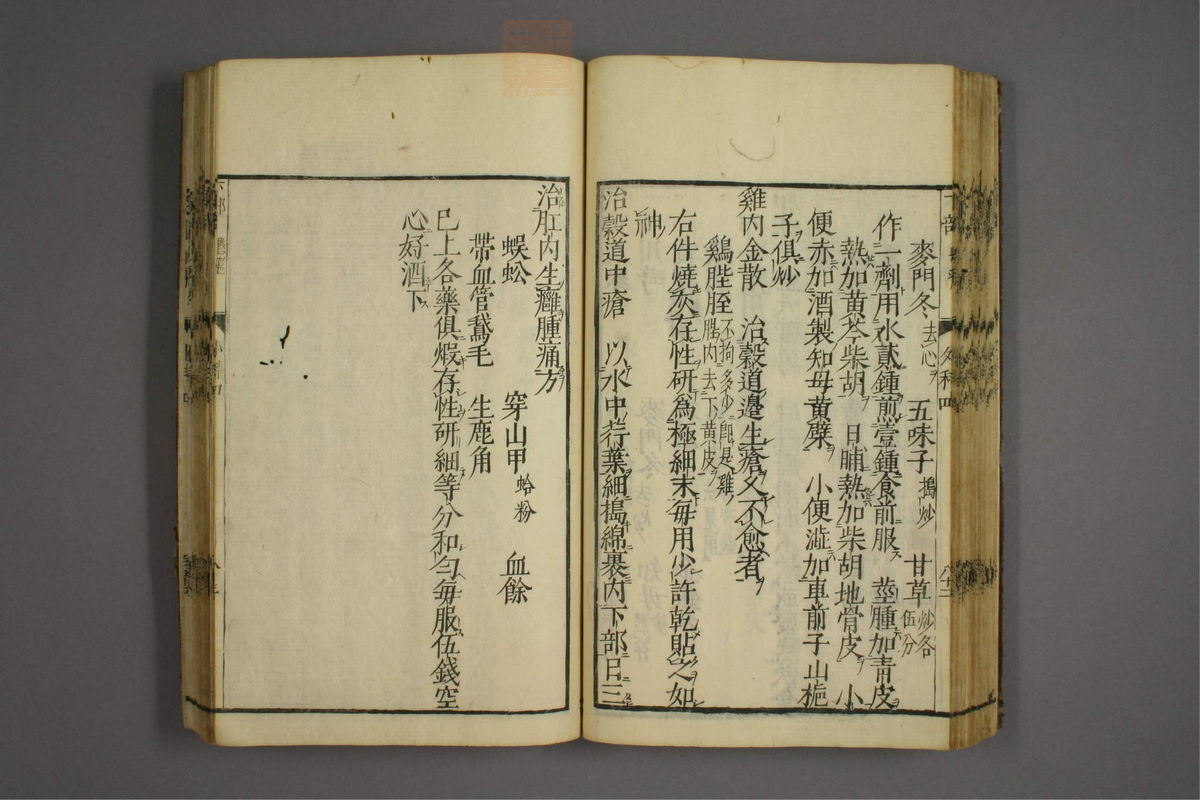 麥門冬去心 五味子搗炒 甘草炒各伍分
作一劑用水貳鍾煎壹鍾食前服 莖腫加青皮
熱加黃芩柴胡 日晡熱加柴胡地骨皮 小
便赤加酒製知母黃檗 小便澁加車前子山梔
子俱炒
雞內金散 治穀道邊生瘡久不愈者
鷄膍胵不拘多少卽是雞肫內去下黃皮
右件燒灰存性研為極細末每用少許乾貼之如
神
治穀道中瘡 以水中荇葉細搗綿裹內下部日三
治肛內生癰腫痛方
蜈蚣 穿山甲蛤粉 血餘
帶血管鵞毛 生鹿角
已上各藥俱煆存性研細等分和勻每服伍錢空
心好酒下